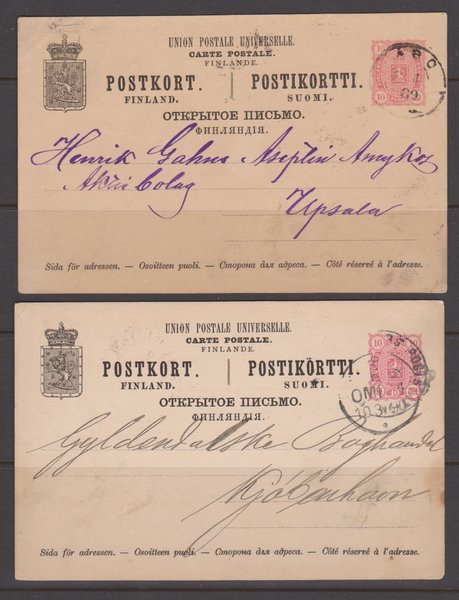 UNION POSTALE UNIVERSELLE.
CARTE POSTALE.
FINLANDE.
POSTKORT. POSTIKORTTI.
FINLAND. SUOMI.
ОТКРЫТОЕ ПИСЬМО.
ФИНЛЯНДІЯ.
10 10
10 10
ÅBO
Henrik Gahns Aseptin Amykos
Aktie bolag
Upsala
Sida för adressen. — Osoitteen puoli. — Сторона для адреса. — Côté réservé à l'adresse.
UNION POSTALE UNIVERSELLE.
CARTE POSTALE.
FINLANDE.
POSTKORT. POSTIKORTTI.
FINLAND. SUOMI.
ОТКРЫТОЕ ПИСЬМО.
ФИНЛЯНДІЯ.
10
OMB
10.3.90
Gyldendalske Boghandel
Kjöbenhavn
Sida för adressen. — Osoitteen puoli. — Сторона для адреса. — Côté réservé à l'adresse.